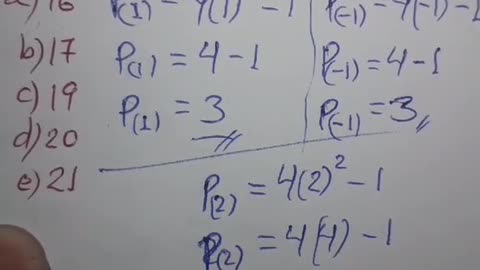 a) 16
b) 17
c) 19
d) 20
e) 21
P(1) = 4(1) - 1
P(1) = 4 - 1
P(1) = 3
P(-1) = 4(-1) - 1
P(-1) = 4 - 1
P(-1) = 3
P(2) = 4(2)² - 1
P(2) = 4(4) - 1